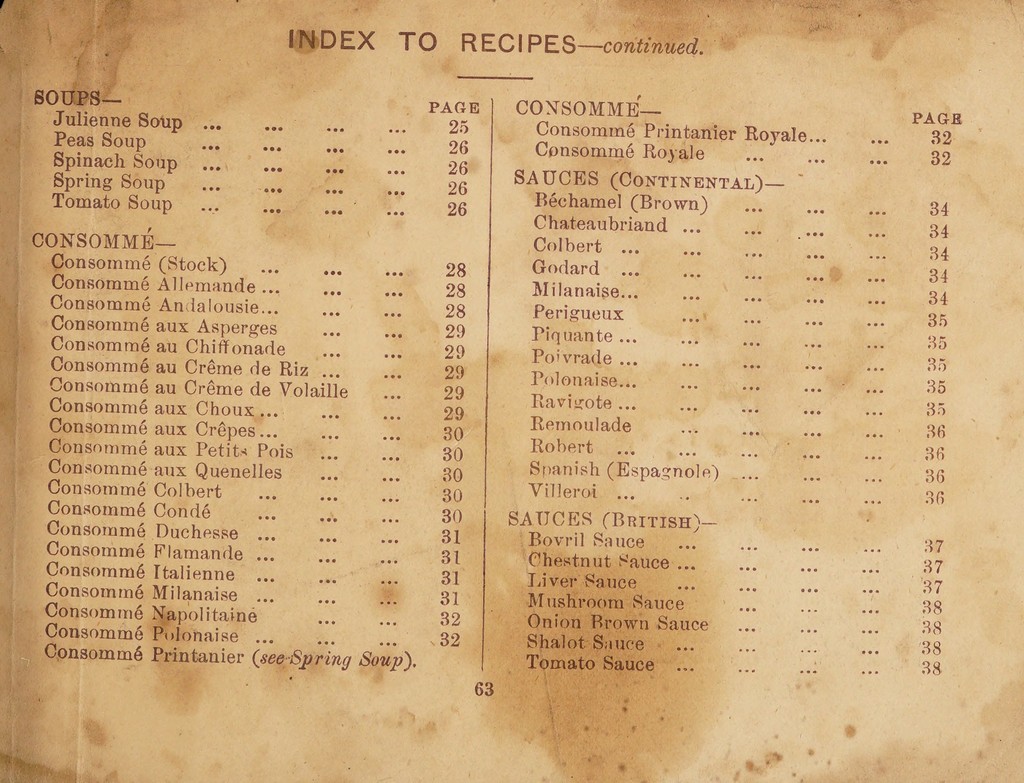 INDEX TO RECIPES—continued.
SOUPS—
PAGE
Julienne Soup ... ... ... ... 25
Peas Soup ... ... ... ... 26
Spinach Soup ... ... ... ... 26
Spring Soup ... ... ... ... 26
Tomato Soup ... ... ... ... 26
CONSOMMÉ—
Consommé (Stock) ... ... ... 28
Consommé Allemande ... ... ... 28
Consommé Andalousie... ... ... 28
Consommé aux Asperges ... ... 29
Consommé au Chiffonade ... ... 29
Consommé au Crême de Riz ... ... 29
Consommé au Crême de Volaille ... 29
Consommé aux Choux ... ... ... 29
Consommé aux Crêpes ... ... ... 30
Consommé aux Petits Pois ... ... 30
Consommé aux Quenelles ... ... 30
Consommé Colbert ... ... ... 30
Consommé Condé ... ... ... 30
Consommé Duchesse ... ... ... 31
Consommé Flamande ... ... ... 31
Consommé Italienne ... ... ... 31
Consommé Milanaise ... ... ... 31
Consommé Napolitaine ... ... 32
Consommé Polonaise ... ... ... 32
Consommé Printanier (see Spring Soup).
CONSOMMÉ—
PAGE
Consommé Printanier Royale... ... 32
Consommé Royale ... ... ... 32
SAUCES (CONTINENTAL)—
Béchamel (Brown) ... ... ... 34
Chateaubriand ... ... ... ... 34
Colbert ... ... ... ... ... 34
Godard ... ... ... ... ... 34
Milanaise... ... ... ... ... 34
Perigueux ... ... ... ... 35
Piquante ... ... ... ... ... 35
Poivrade ... ... ... ... ... 35
Polonaise... ... ... ... ... 35
Ravigote ... ... ... ... ... 35
Remoulade ... ... ... ... 36
Robert ... ... ... ... ... 36
Spanish (Espagnole) ... ... ... 36
Villeroi ... .. ... ... ... 36
SAUCES (BRITISH)—
Bovril Sauce ... ... ... ... 37
Chestnut Sauce ... ... ... ... 37
Liver Sauce ... ... ... ... 37
Mushroom Sauce ... ... ... 38
Onion Brown Sauce ... ... ... 38
Shalot Sauce ... ... ... ... 38
Tomato Sauce ... ... ... ... 38
63